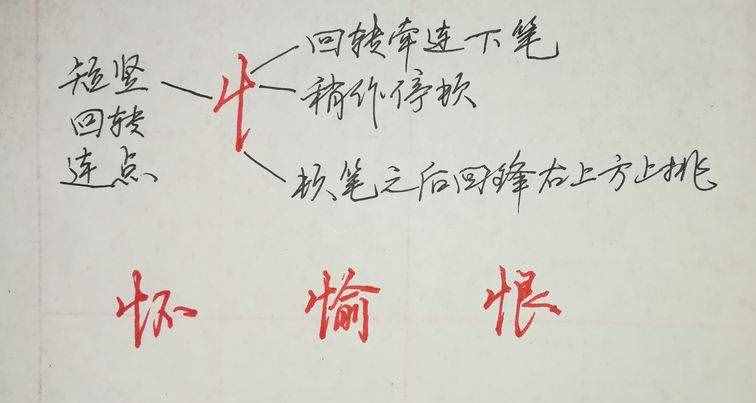 短竖
回转
连点
忄
回转牵连下笔
稍作停顿
顿笔之后回锋右上方上挑
怀 愉 恨